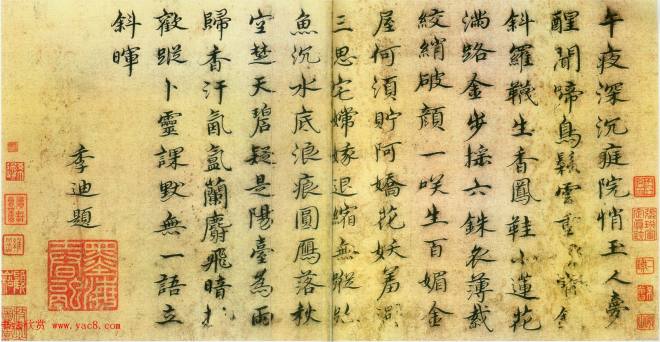 午夜深沉庭院悄玉人夢
醒聞啼鳥鬢雲重
斜羅襪生香鳳鞋小蓮花
滿路金步搖六銖衣薄裁
絞綃破顏一咲生百媚金
屋何須貯阿嬌花妖羞
三思宅嫦娥退縮無蹤跡
魚沉水底浪痕圓鴈落秋
空楚天碧疑是陽臺為雨
歸香汗氤氳蘭麝飛暗
歡蹤卜靈課默無一語立
斜暉
季迪題
www.yac8.com